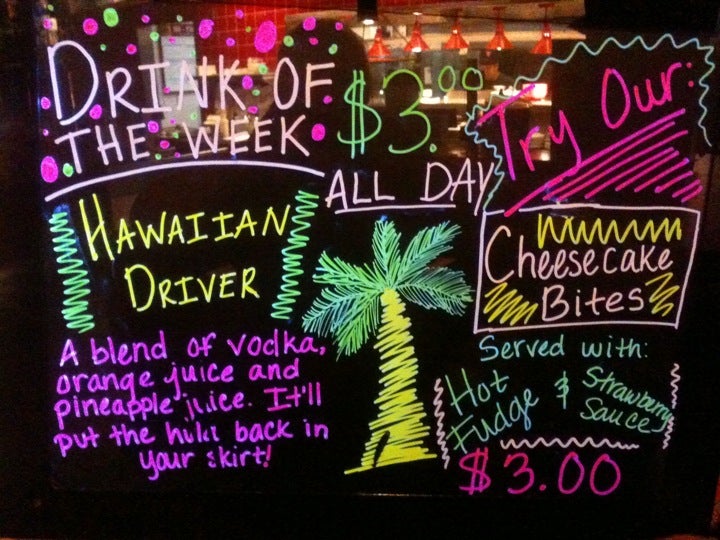 DRINK OF
THE WEEK
$3.00
ALL DAY
HAWAIIAN
DRIVER
A blend of vodka,
orange juice and
pineapple juice. It'll
put the hula back in
your skirt!
Try Our:
Cheesecake
Bites
Served with:
Hot
Fudge & Strawberry
Sauce
$3.00